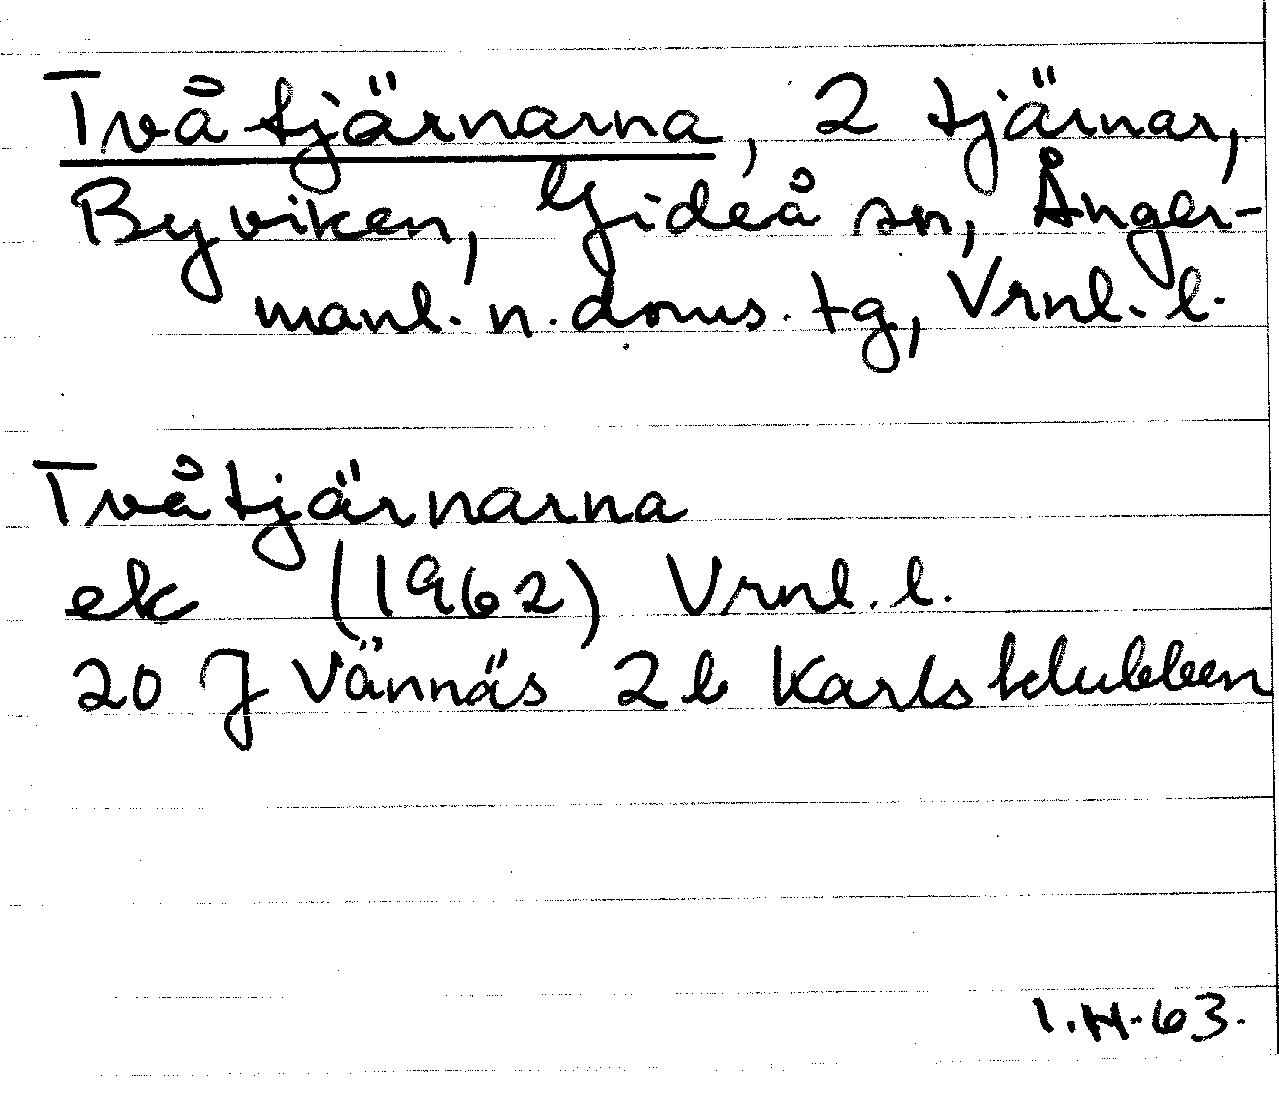 Tvåtjärnarna, 2 tjärnar,
Byviken, Gideå sn, Ånger-
manl. n. doms. tg, Vrnl. l.
Tvåtjärnarna
ek (1962) Vrnl. l.
20 J Vännäs 2 b Karlsklubben
I.H-63.